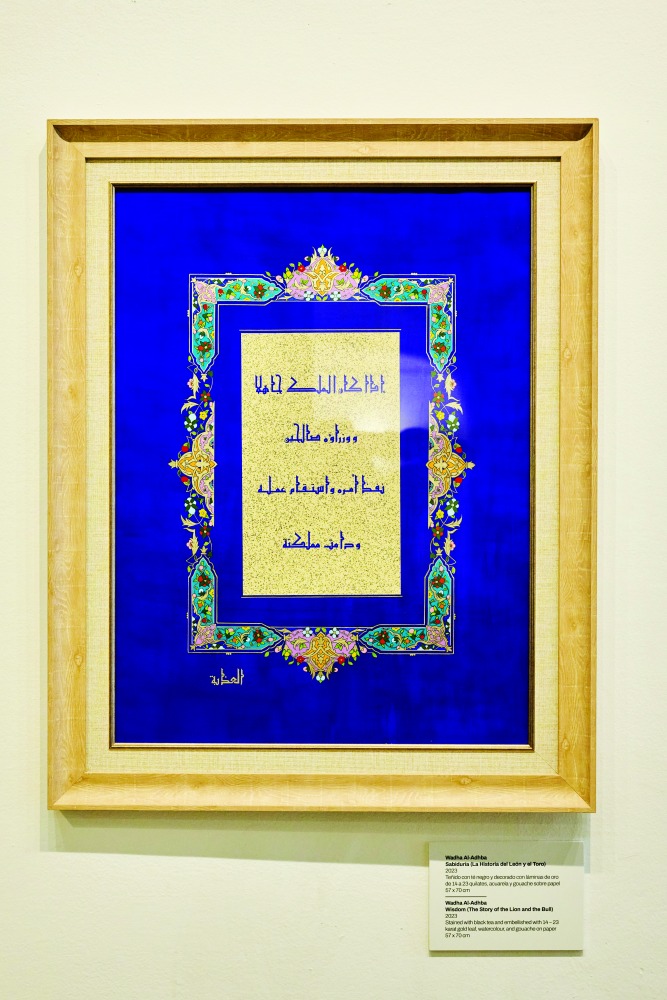 إذا كان الملك جاهلا
ووزراؤه صالحين
نفذ أمره واستقام عمله
ودامت مملكته
العذبة
Wadha Al-Adhba
Sabiduría (La Historia del León y el Toro)
2023
Teñido con té negro y decorado con láminas de oro
de 14 a 23 quilates, acuarela y gouache sobre papel
57 x 70 cm
Wadha Al-Adhba
Wisdom (The Story of the Lion and the Bull)
2023
Stained with black tea and embellished with 14 – 23
karat gold leaf, watercolour, and gouache on paper
57 x 70 cm